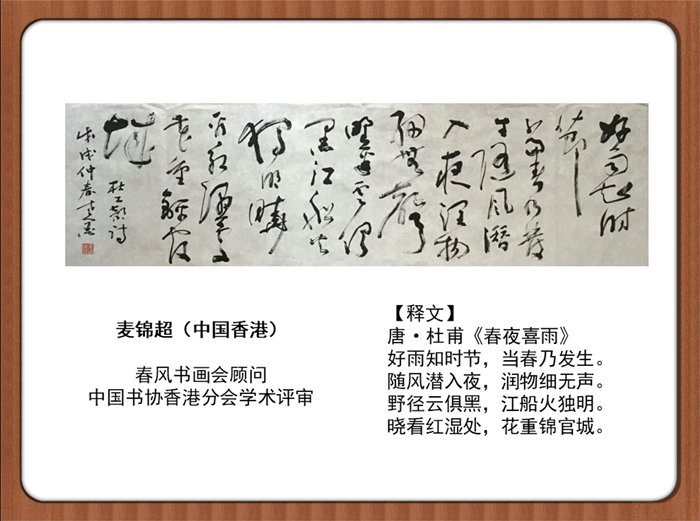 好雨知時
節
當春乃發
生隨風潛
入夜潤物
細無聲
野徑雲俱
黑江船火
獨明曉
看紅濕處
花重錦官
城
杜工部詩
戊戌仲春
麦锦超（中国香港）
春风书画会顾问
中国书协香港分会学术评审
【释文】
唐·杜甫《春夜喜雨》
好雨知时节，当春乃发生。
随风潜入夜，润物细无声。
野径云俱黑，江船火独明。
晓看红湿处，花重锦官城。